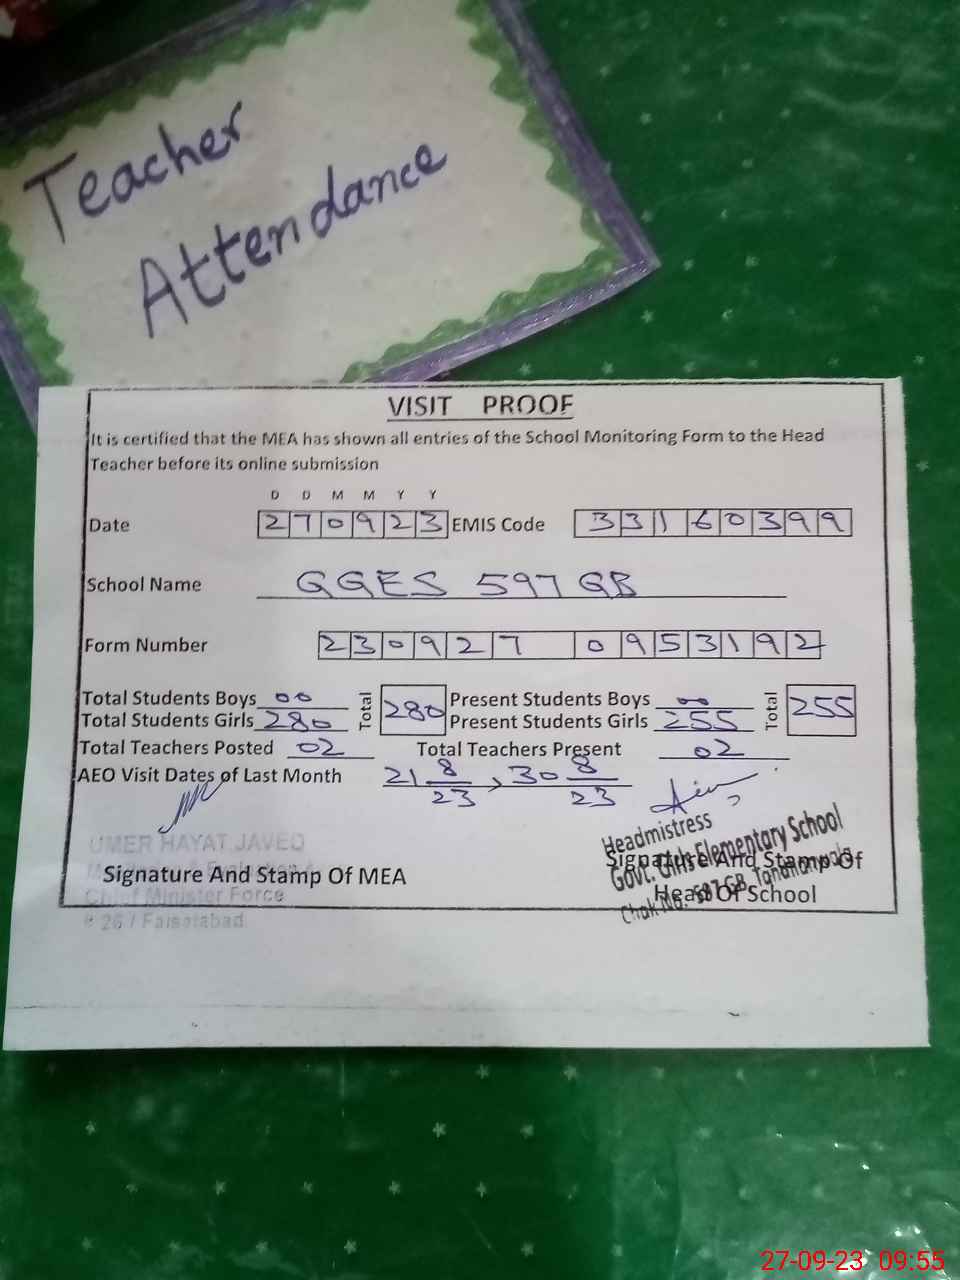 Teacher
Attendance
VISIT PROOF
It is certified that the MEA has shown all entries of the School Monitoring Form to the Head
Teacher before its online submission
D D M M Y Y
Date 270923 EMIS Code 33160399
School Name GGES 597 GB
Form Number 230927 0953192
Total Students Boys 00 Total 280 Present Students Boys 00 Total 255
Total Students Girls 280 Present Students Girls 255
Total Teachers Posted 02 Total Teachers Present 02
AEO Visit Dates of Last Month 21 8/23, 30 8/23
UMER HAYAT JAVED
Chief Minister Force
Faisalabad
Signature And Stamp Of MEA
Headmistress
Govt. Girls Elementary School
Chak No. 597 GB
Signature And Stamp Of
Head Of School
27-09-23 09:55